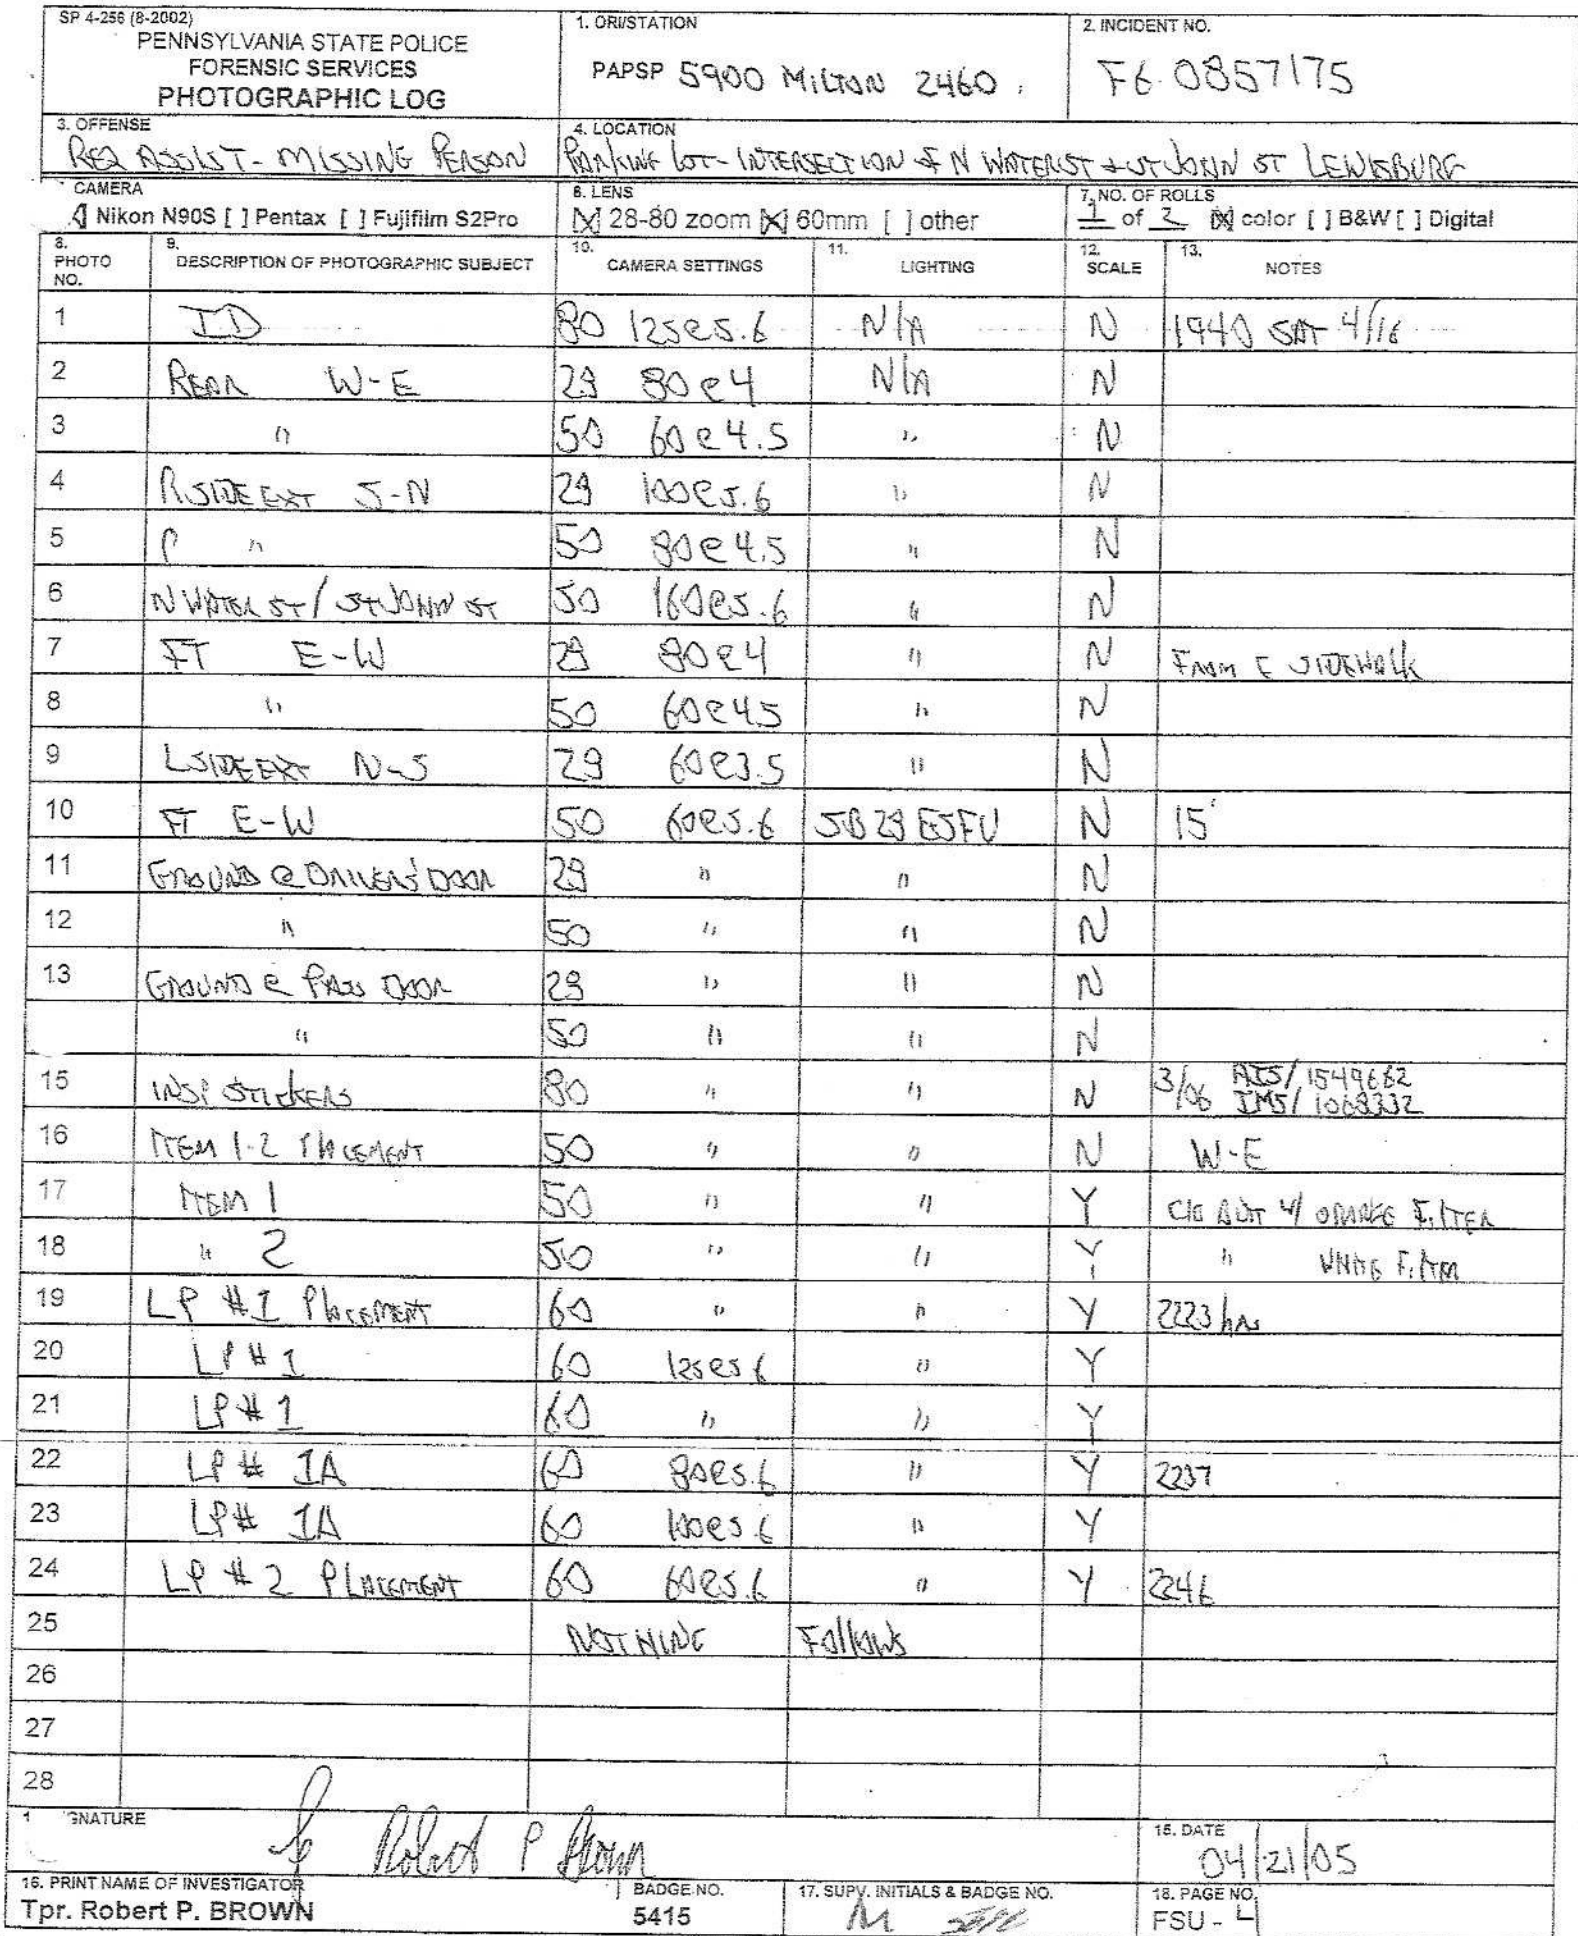 SP 4-256 (8-2002)
PENNSYLVANIA STATE POLICE
FORENSIC SERVICES
PHOTOGRAPHIC LOG
1. ORI/STATION
PAPSP 5900 MILTON 2460
2. INCIDENT NO.
F6-0857175
3. OFFENSE
REQ ASSIST - MISSING PERSON
4. LOCATION
PARKING LOT - INTERSECTION OF N WATER ST + ST JOHN ST LEWISBURG
CAMERA
[X] Nikon N90S [ ] Pentax [ ] Fujifilm S2Pro
6. LENS
[X] 28-80 zoom [X] 60mm [ ] other
7. NO. OF ROLLS
1 of 2 [X] color [ ] B&W [ ] Digital
8. PHOTO NO. 9. DESCRIPTION OF PHOTOGRAPHIC SUBJECT 10. CAMERA SETTINGS 11. LIGHTING 12. SCALE 13. NOTES
1 ID 80 125@5.6 N/A N 1940 SAT 4/16
2 REAR W-E 28 80@4 N/A N
3 " 50 60@4.5 " N
4 R SIDE EXT S-N 28 100@5.6 " N
5 " 50 80@4.5 " N
6 N WATER ST / ST JOHN ST 50 160@5.6 " N
7 FT E-W 28 80@4 " N FROM E SIDEWALK
8 " 50 60@4.5 " N
9 L SIDE EXT N-S 28 60@3.5 " N
10 FT E-W 50 60@5.6 SB 28 N 15'
11 GROUND @ DRIVERS' DOOR 28 " " N
12 " 50 " " N
13 GROUND @ PASS DOOR 28 " " N
" 50 " " N
15 INSP STICKERS 80 " " N 3/06 AIS/ 1549662
IMS/ 1068332
16 ITEM 1-2 PLACEMENT 50 " " N W-E
17 ITEM 1 50 " " Y CIG BUT W/ ORANGE FILTER
18 " 2 50 " " Y " WHITE FILTER
19 LP #1 PLACEMENT 60 " " Y 2223 hrs
20 LP #1 60 125@5.6 " Y
21 LP #1 60 " " Y
22 LP # 1A 60 80@5.6 " Y 2237
23 LP # 1A 60 100@5.6 " Y
24 LP #2 PLACEMENT 60 60@5.6 " Y 2246
25 NOTHING FOLLOWS
26
27
28
1 GNATURE
Robert P Brown
15. DATE
04/21/05
16. PRINT NAME OF INVESTIGATOR
Tpr. Robert P. BROWN
BADGE NO.
5415
17. SUPV. INITIALS & BADGE NO.
18. PAGE NO.
FSU - 4